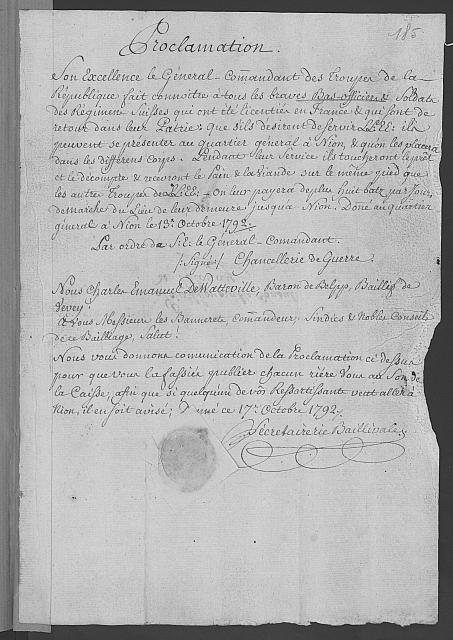 185
Proclamation.
Son Excellence le Géneral-Commandant des Trouppes de la
République fait connoitre à tous les braves Bas-officiers & Soldats
des Régimens Suisses qui ont été licentiés en France & qui sont de
retour dans leur Patrie; que s'ils desirent de servir LL:EE: ils
peuvent se présenter au quartier général à Nion, & qu'on les placera
dans les differens Corps. Pendant leur Service ils toucheront le prêt
et le décompte & recevront le Pain & la Viande sur le même pied que
les autres Trouppes de LL:EE: On leur payera de plus huit batz par Jour,
de marche du Lieu de leur demeure jusqu'à Nion. Donné au quartier
géneral à Nion le 13e Octobre 1792.
Par ordre de S:E: le Géneral-Commandant.
/:Signé:/ Chancellerie de Guerre.
Nous Charles Emanuel De Watteville, Baron de Belpp, Baillif de
Vevey!
à Vous Messieurs les Bannerets, Commandeur, Sindics & Nobles Conseils
de ce Bailliage, Salut!
Nous vous donnons comunication de la Proclamation ci dessus
pour que vous la fassiés publier chacun riére Vous au Son de
la Caisse, afin que si quelqu'un de vos Ressortissants veut aller à
Nion, il en soit avisé; ce 17e Octobre 1792.
Sécretairerie Baillivale.